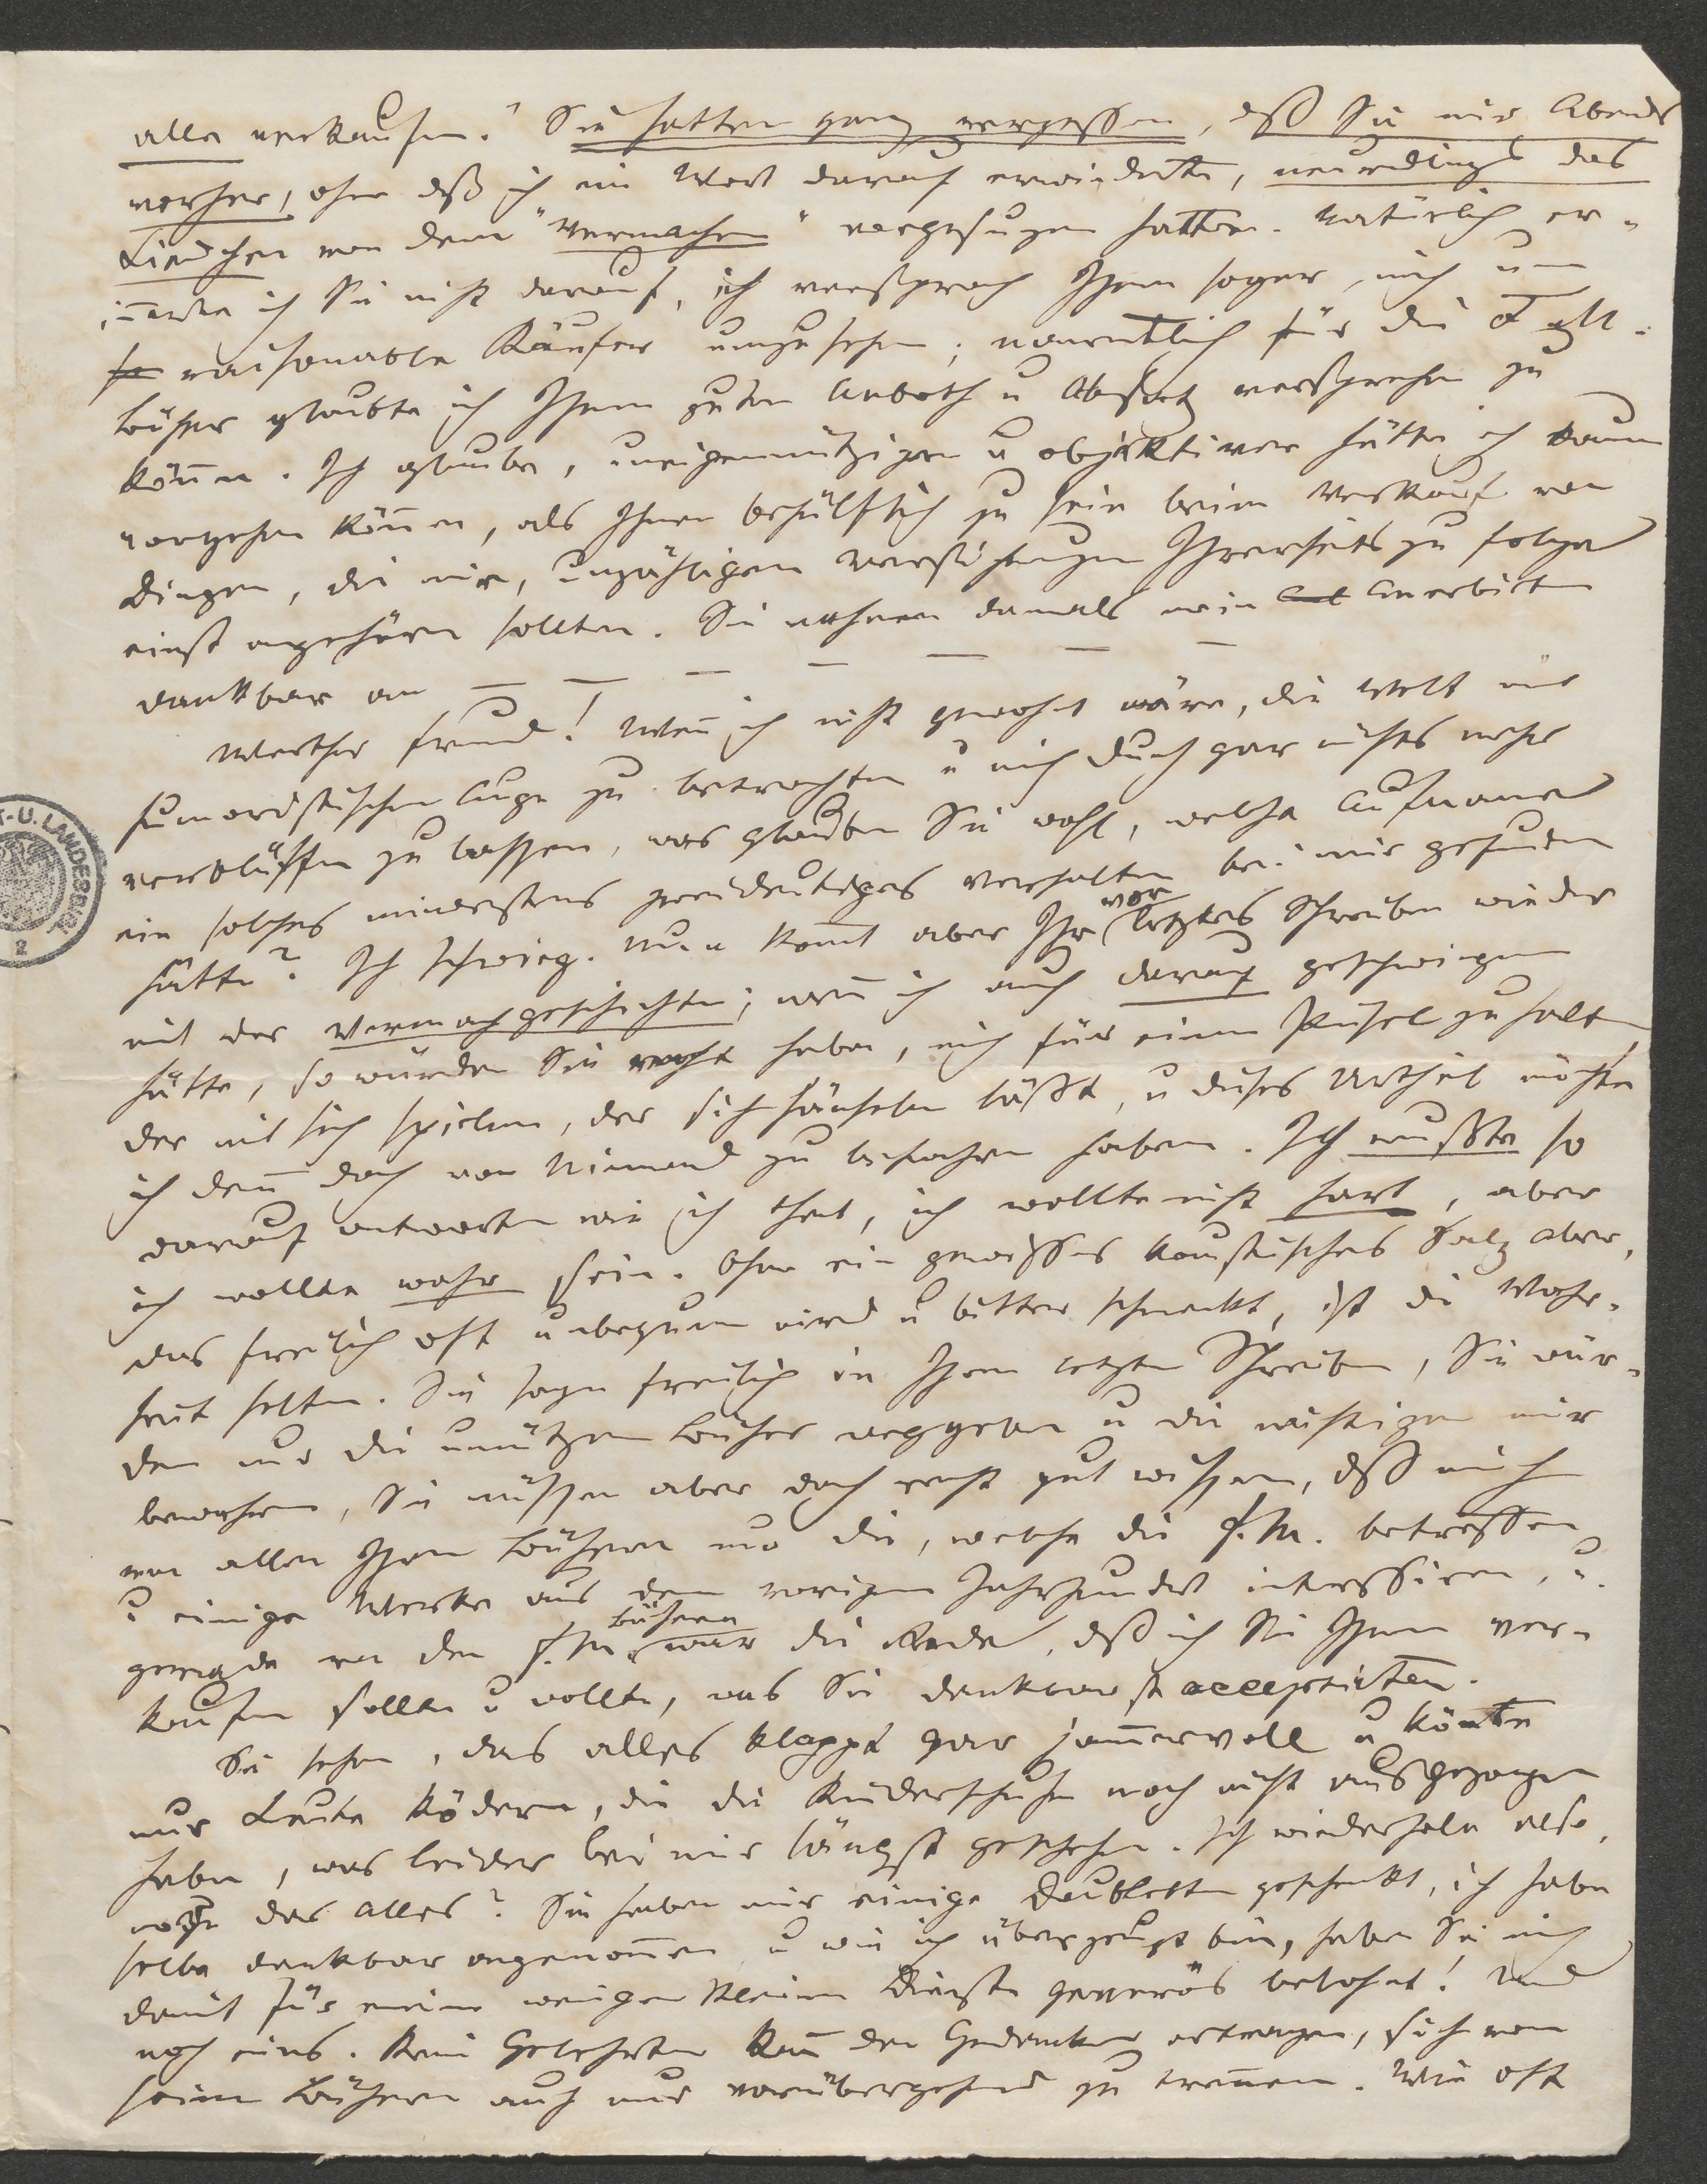 alle verkaufen. Sie hatten ganz vergessen, dß Sie mir Abends
vorher, ohne dß ich ein Wort darauf erwiederte, neuerdings das
Liedchen von dem "Vermachen" vorgesungen hatten. Natürlich er-
iñerte ich Sie nicht darauf, ich versprach Ihnen sogar, mich um
raisonable Käufer umzusehen; namentlich für die
bücher glaubte ich Ihnen guten Anboth u Absatz versprechen zu
köñen. Ich glaube, uneigennütziger u objektiver hätte ich kaum
vorgehen köñen, als Ihnen behülflich zu sein beim Verkauf von
Dingen, die mir, unzähligen Versicherungen Ihrerseits zu folge
einst angehören sollten. Sie nahmen damals mein Anerbieten
dankbar an — — — — — — —
Werther Freund! Weñ ich nicht gewohnt wäre, die Welt mit
humoristischem Auge zu betrachten u mich durch gar nichts mehr
verblüffen zu lassen, was glauben Sie wohl, welche Aufname
ein solches mindestens zweideutiges Verhalten bei mir gefunden
hätte? Ich schwieg. Nun komt aber Ihr vorletztes Schreiben wieder
mit der Vermachgeschichte; weñ ich auch darauf geschwiegen
hätte, so würden Sie recht haben, mich für einen Pinsel zu halten
der mit sich spielen, der sich hänseln läßt, u dieses Urtheil möchte
ich deñ doch von Niemand zu befahren haben. Ich mußte so
darauf antworten wie ich that, ich wollte nicht hart, aber
ich wollte wahr sein. Ohne ein gewisses kaustisches Salz aber,
das freilich oft unbequem wird u bitter schmekt, ist die Wahr-
heit selten. Sie sagen freilich in Ihrem letzten Schreiben, Sie wür-
den nur die unützen Bücher weggeben u die wichtigen mir
bewahren, Sie müssen aber doch recht gut wissen, dß mich
von allen Ihren Büchern nur die, welche die f. M. betreffen
u einige Werke aus dem vorigen Jahrhundert interessiren, u
gerade von den f. M. Büchern war die Rede, dß ich Sie Ihnen ver-
kaufen sollte u wollte, was Sie dankbarst acceptirten.
Sie sehen, das alles klappt gar jam̄ervoll u köñte
nur Leute ködern, die die Kinderschuhe noch nicht ausgezogen
haben, was leider bei mir längst geschehen. Ich wiederhole also,
wozu das alles? Sie haben mir einige Doubletten geschenkt, ich habe
selbe dankbar angenom̄en u wie ich überzeugt bin, haben Sie mich
damit für meine wenigen kleinen Dienste generös belohnt! Und
noch eins. Kein Gelehrter kañ den Gedanken ertragen, sich von
seinen Büchern auch nur vorübergehend zu treñen. Wie oft
T.-U. LANDESBIBL
2